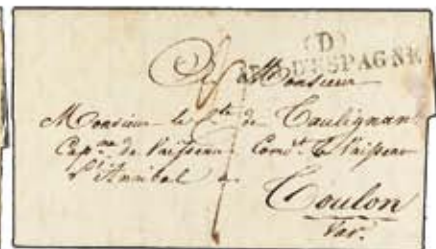 (D)
D'ESPAGNE
A Monsieur
Monsieur le Cte de Caulignan
Capne de Vaisseau Comdt le Vaisseau
l'Annibal a
Toulon
Var.